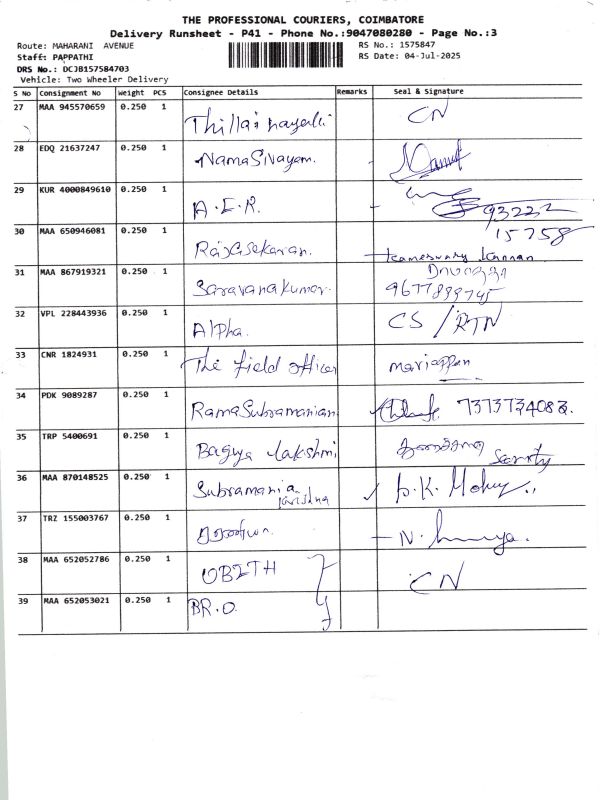 THE PROFESSIONAL COURIERS, COIMBATORE
Delivery Runsheet - P41 - Phone No.:9047080280 - Page No.:3
Route: MAHARANI AVENUE
RS No.: 1575847
Staff: PAPPATHI
RS Date: 04-Jul-2025
DRS No.: DCJB157584703
Vehicle: Two Wheeler Delivery
S No Consignment No Weight PCS Consignee Details Remarks Seal & Signature
27 MAA 945570659 0.250 1 CN
28 EDQ 21637247 0.250 1 NamaSivayam.
29 KUR 4000849610 0.250 1 A.E.R. 93222
15758
30 MAA 650946081 0.250 1 Rajasekaran.
31 MAA 867919321 0.250 1 Saravanakumar. 9677899745
32 VPL 228443936 0.250 1 Alpha. CS / RTN
33 CNR 1824931 0.250 1 The field officer mariappan
34 PDK 9089287 0.250 1 RamaSubramanian 7373734083.
35 TRP 5400691 0.250 1 Bagya lakshmi
36 MAA 870148525 0.250 1 Subramania
krishna
37 TRZ 155003767 0.250 1
38 MAA 652052786 0.250 1 OBITH CN
39 MAA 652053021 0.250 1 BR.O.